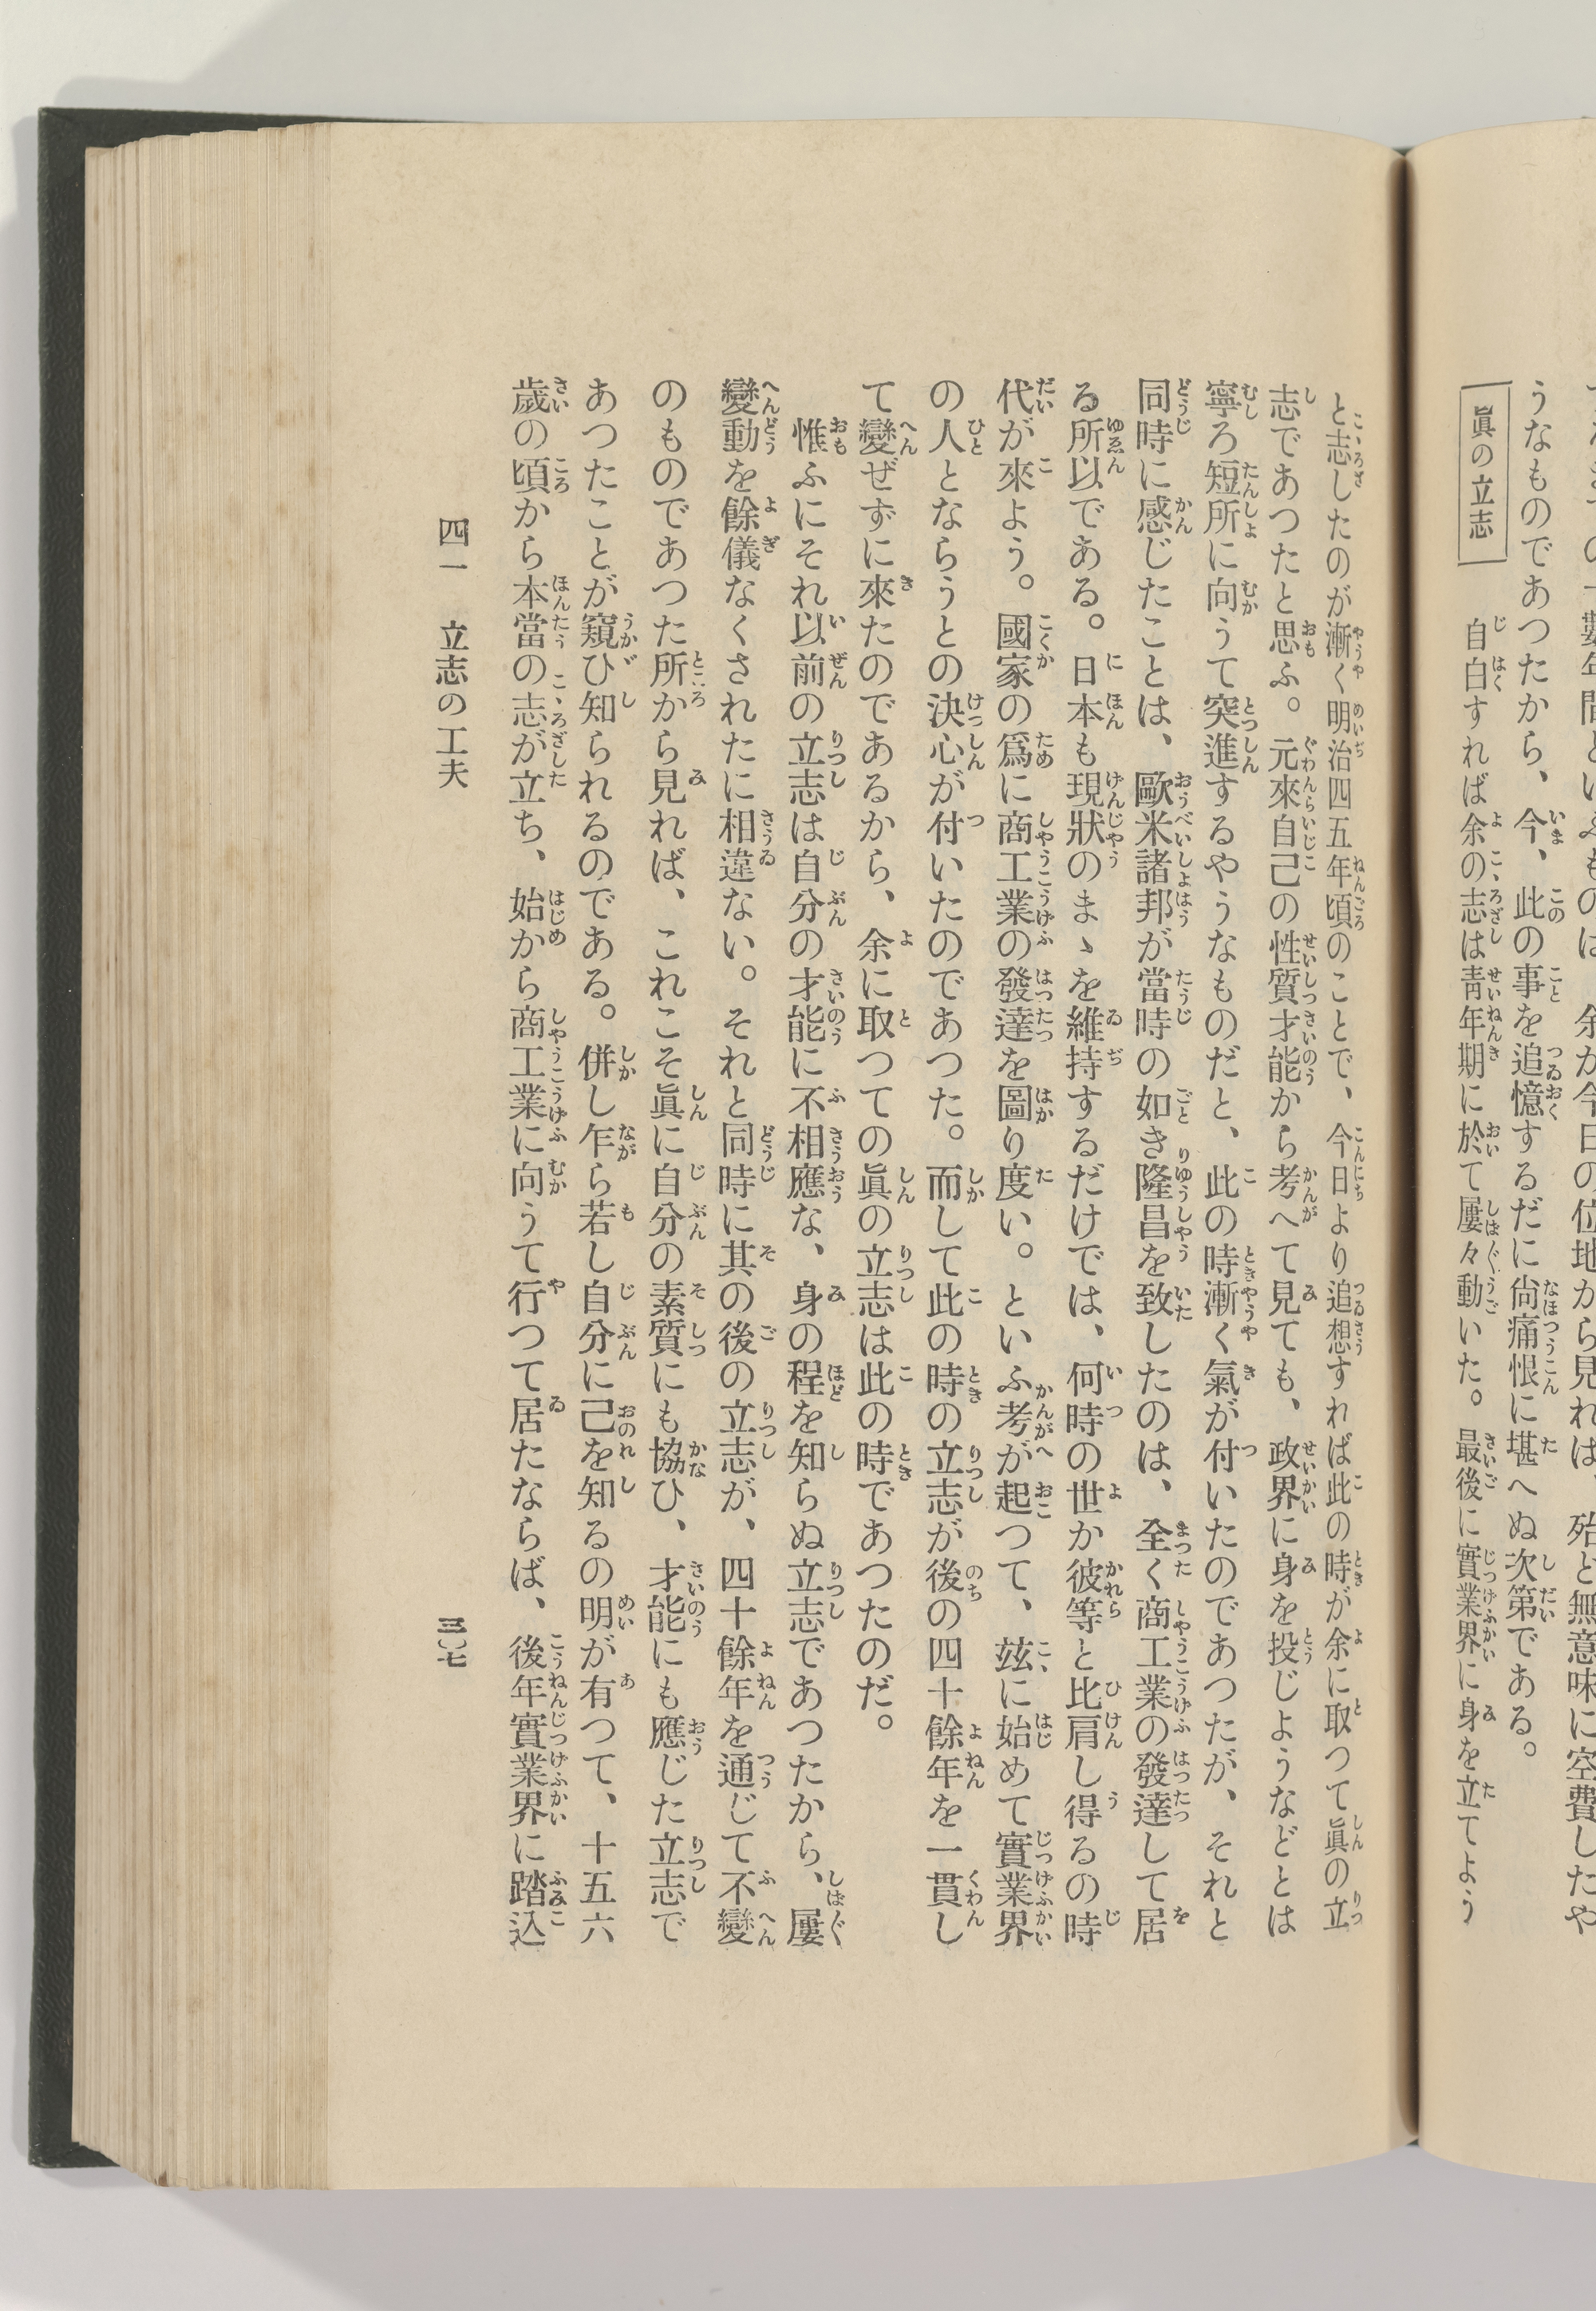 數年間といふものは、余が今日の位地から見れば、殆ど無意味に空費したや
うなものであつたから、今、此の事を追憶するだに尙痛恨に堪へぬ次第である。
眞の立志
自白すれば余の志は靑年期に於て屢々動いた。最後に實業界に身を立てよう
と志したのが漸く明治四五年頃のことで、今日より追想すれば此の時が余に取つて眞の立
志であつたと思ふ。元來自己の性質才能から考へて見ても、政界に身を投じようなどとは
寧ろ短所に向うて突進するやうなものだと、此の時漸く氣が付いたのであつたが、それと
同時に感じたことは、歐米諸邦が當時の如き隆昌を致したのは、全く商工業の發達して居
る所以である。日本も現狀のまゝを維持するだけでは、何時の世か彼等と比肩し得るの時
代が來よう。國家の爲に商工業の發達を圖り度い。といふ考が起つて、玆に始めて實業界
の人とならうとの決心が付いたのであつた。而して此の時の立志が後の四十餘年を一貫し
て變ぜずに來たのであるから、余に取つての眞の立志は此の時であつたのだ。
惟ふにそれ以前の立志は自分の才能に不相應な、身の程を知らぬ立志であつたから、屢
變動を餘儀なくされたに相違ない。それと同時に其の後の立志が、四十餘年を通じて不變
のものであつた所から見れば、これこそ眞に自分の素質にも協ひ、才能にも應じた立志で
あつたことが窺ひ知られるのである。併し乍ら若し自分に己を知るの明が有つて、十五六
歲の頃から本當の志が立ち、始から商工業に向うて行つて居たならば、後年實業界に踏込
四一　立志の工夫　三〇七